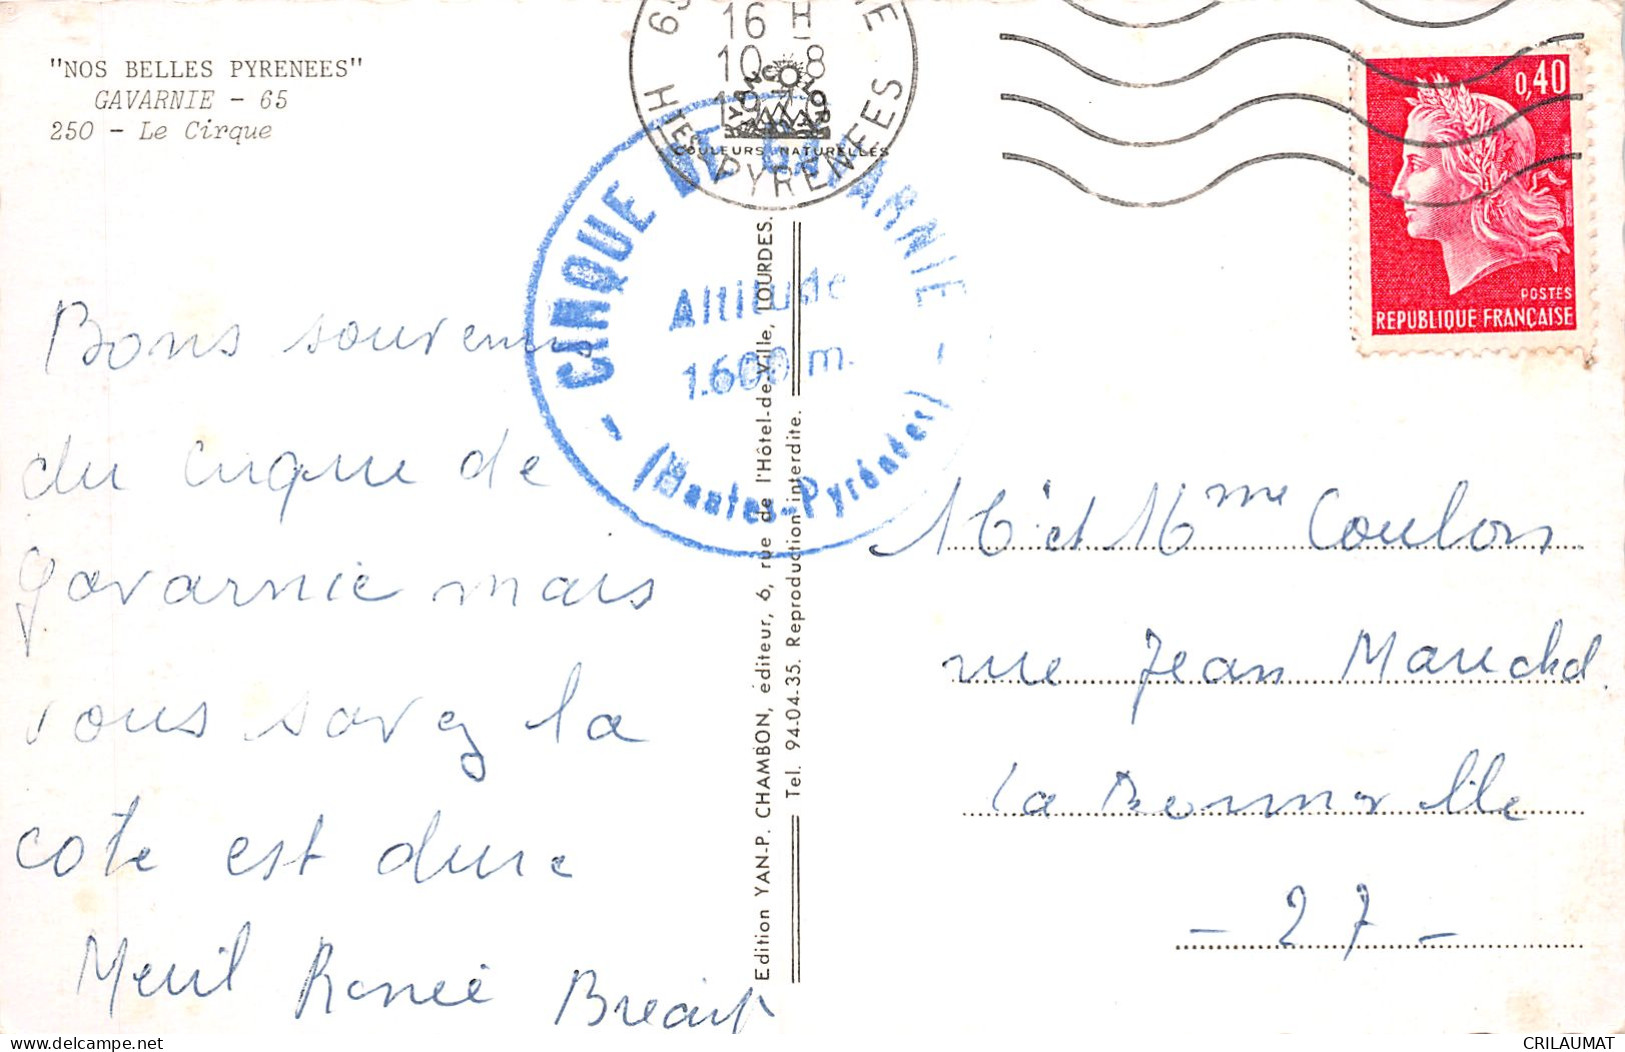 "NOS BELLES PYRENEES"
GAVARNIE - 65
250 - Le Cirque
16 H
10 - 8
Htes PYRENEES
YAN COLOR
COULEURS NATURELLES
CIRQUE DE GAVARNIE
Altitude
1.600 m.
(Hautes-Pyrénées)
0,40
POSTES
REPUBLIQUE FRANÇAISE
Bons souvenir
du cirque de
gavarnie mais
vous savez la
cote est dure
Meril Renée
Edition YAN-P. CHAMBON, éditeur, 6, rue de l'Hôtel-de-Ville, LOURDES.
Tel. 94-04-35. Reproduction interdite.
Mr et Mme Coulon
rue Jean
La Bonneville
- 27 -
CRILAUMAT